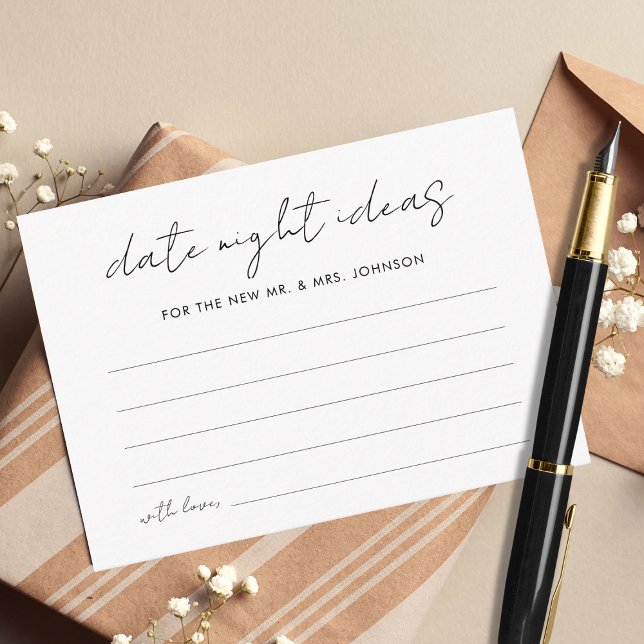 date night ideas
FOR THE NEW MR. & MRS. JOHNSON
with love,